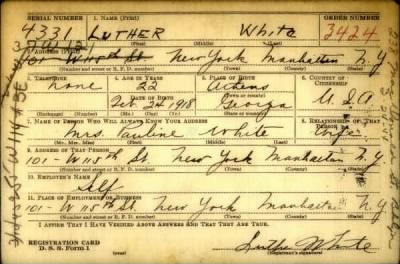 SERIAL NUMBER 1. NAME (Print) ORDER NUMBER
4331 LUTHER White 3424
(First) (Middle) (Last)
2. ADDRESS (Print)
101- W 115th St. New York Manhattan N.Y.
(Number and street or R. F. D. number) (Town) (County) (State)
3. TELEPHONE 4. AGE IN YEARS 5. PLACE OF BIRTH 6. COUNTRY OF CITIZENSHIP
none 22 Athens
DATE OF BIRTH
Feb. 24 1918 Georgia U.S.A
(Exchange) (Number) (Mo.) (Day) (Yr.) (State or country)
7. NAME OF PERSON WHO WILL ALWAYS KNOW YOUR ADDRESS 8. RELATIONSHIP OF THAT PERSON
Mrs. Pauline White Wife
(Mr., Mrs., Miss) (First) (Middle) (Last)
9. ADDRESS OF THAT PERSON
101- W 115th St. New York Manhattan N.Y.
(Number and street or R. F. D. number) (Town) (County) (State)
10. EMPLOYER'S NAME
Self
11. PLACE OF EMPLOYMENT OR BUSINESS
101- W 115th St. New York Manhattan N.Y.
(Number and street or R. F. D. number) (Town) (County) (State)
I AFFIRM THAT I HAVE VERIFIED ABOVE ANSWERS AND THAT THEY ARE TRUE.
REGISTRATION CARD
D. S. S. Form 1 (over) Luther White
(Registrant's signature)